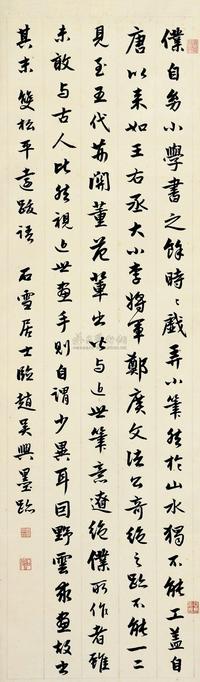 僕自幼小學書之餘時〻戲弄小筆然於山水獨不能工盖自
唐以来如王右丞大小李將軍鄭廣文諸公奇絶之跡不能一二
見至五代荊關董范輩出皆与近世筆意遼絶僕所作者雖
未敢与古人比然視近世畫手則自謂少異耳因野雲求畫故書
其末 雙松平遠跋語 石雪居士臨趙吳興墨跡